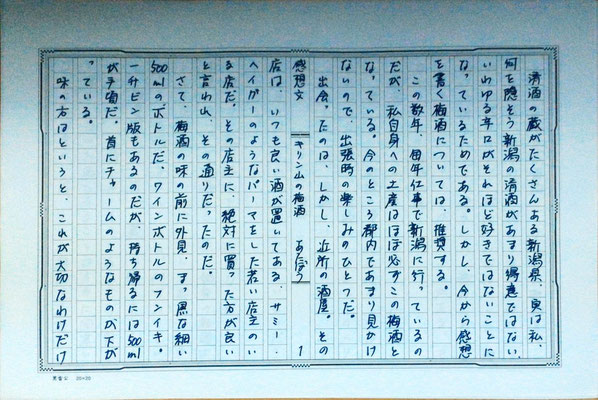 清酒の蔵がたくさんある新潟県、実は私、
何を隠そう新潟の清酒があまり得意ではない。
いわゆる辛口がそれほど好きではないことに
なっているためである。しかし、今から感想
を書く梅酒については、推奨する。
この数年、毎年仕事で新潟に行っているの
だが、私自身への土産はほぼ必ずこの梅酒と
なっている。今のところ都内であまり見かけ
ないので、出張時の楽しみのひとつだ。
出会ったのは、しかし、近所の酒屋。その
感想文 キリン山の梅酒 あたぼう 1
店は、いつも良い酒が置いてある、サミー・
ヘイガーのようなパーマをした若い店主のい
る店だ。その店主に、絶対に買った方が良い
と言われ、その通りだったのだ。
さて、梅酒の味の前に外見、まっ黒な細い
500mlのボトルだ。ワインボトルのフンイキ。
一升ビン版もあるのだが、持ち帰るには500ml
が手頃だ。首にチャームのようなものが下が
っている。
味の方はというと、これが大切なわけだけ